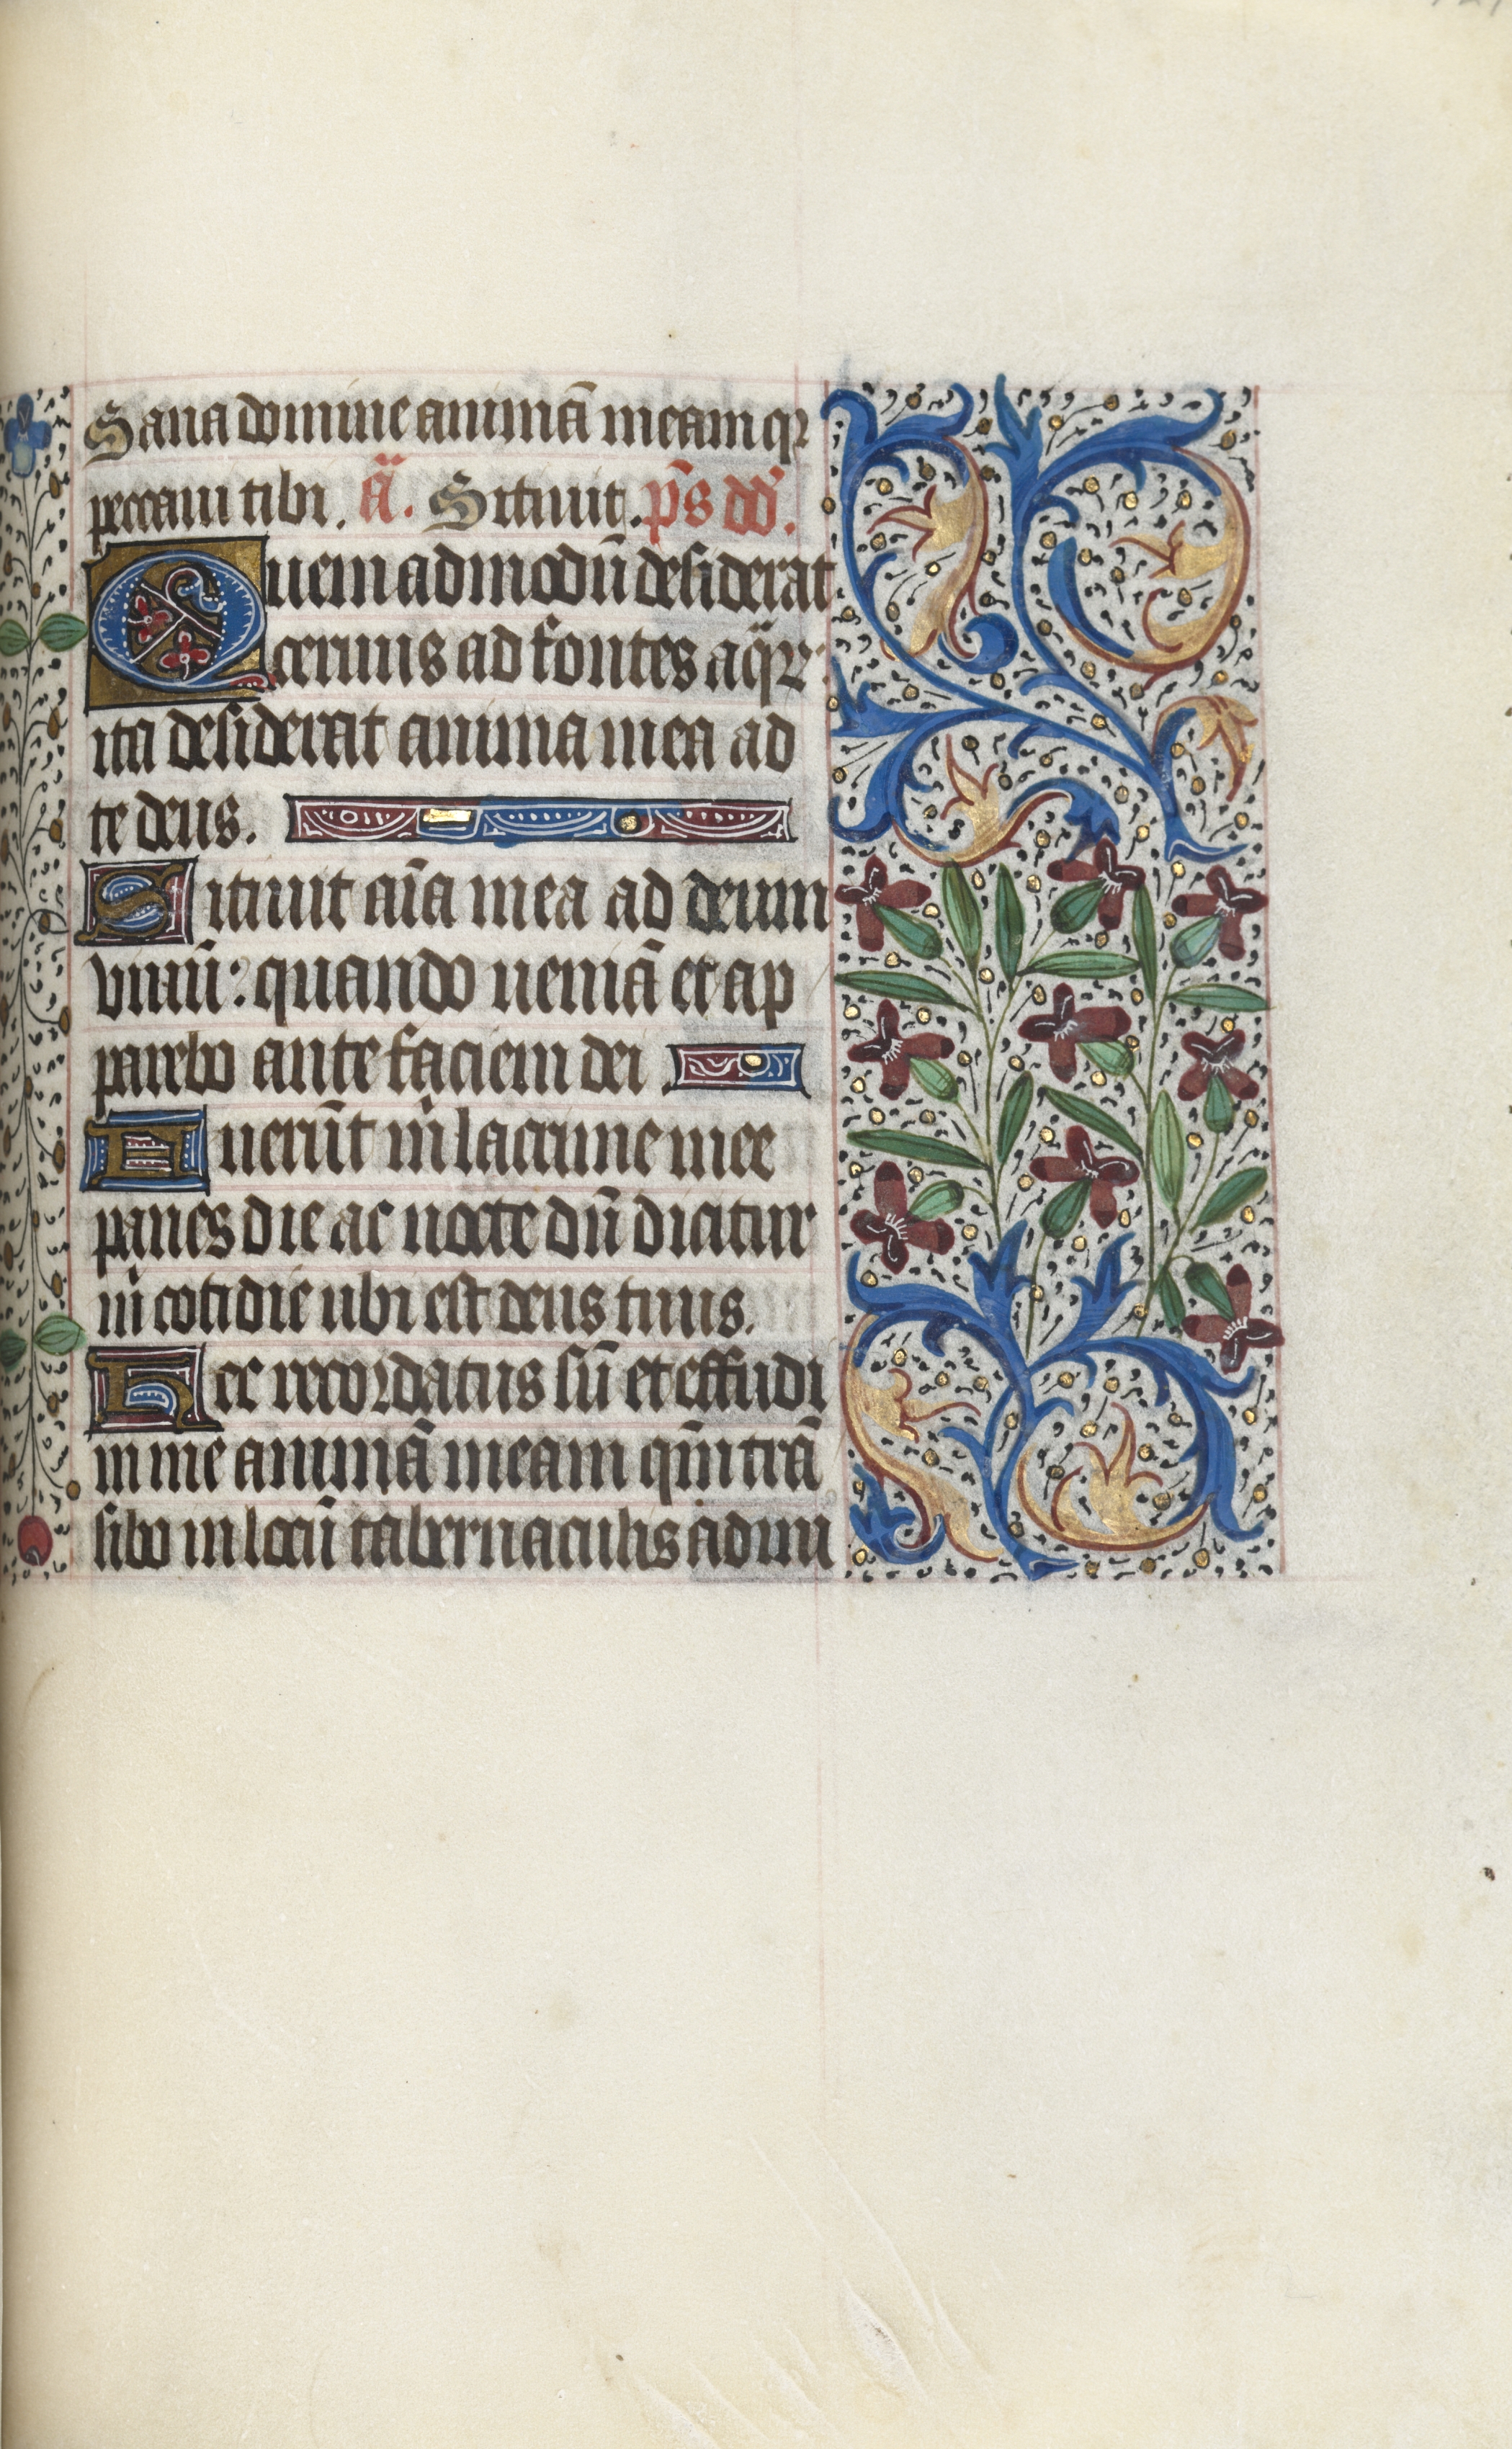 Sana domine animā meam qꝛ
peccaui tibi. ā. Sitiuit. p̄s dd̄.
Quemadmodū desiderat
ceruus ad fontes aq̈rꝝ:
ita desiderat anima mea ad
te deus.
Sitiuit aīa mea ad deum
viuū: quando ueniā et ap
parebo ante faciem dei.
Fuerūt m̄ lacrime mee
panes die ac nocte dū dicitur
m̄ cotidie ubi est deus tuus.
Hec recordatus sū et effudi
in me animā meam qm̄ trā
sibo in locū tabernaculis admi